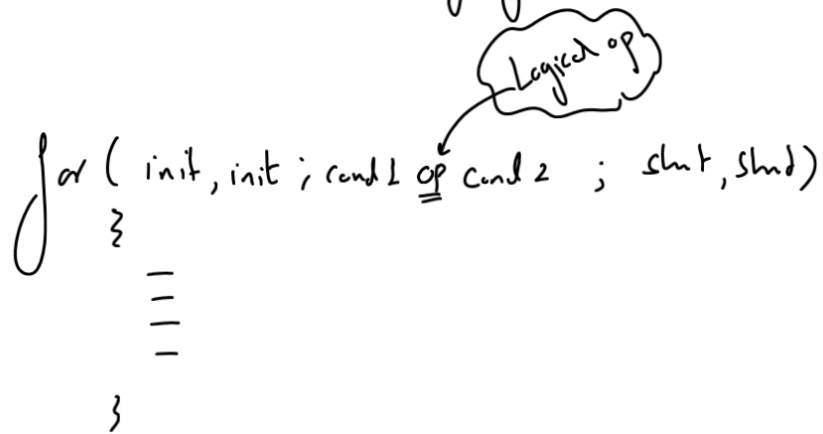 Logical op
for ( init, init ; cond 1 op cond 2 ; stmt, stmt)
{
}